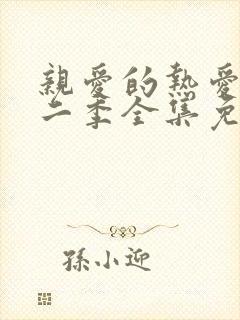 親愛的熱愛
二季全集免
孫小迎